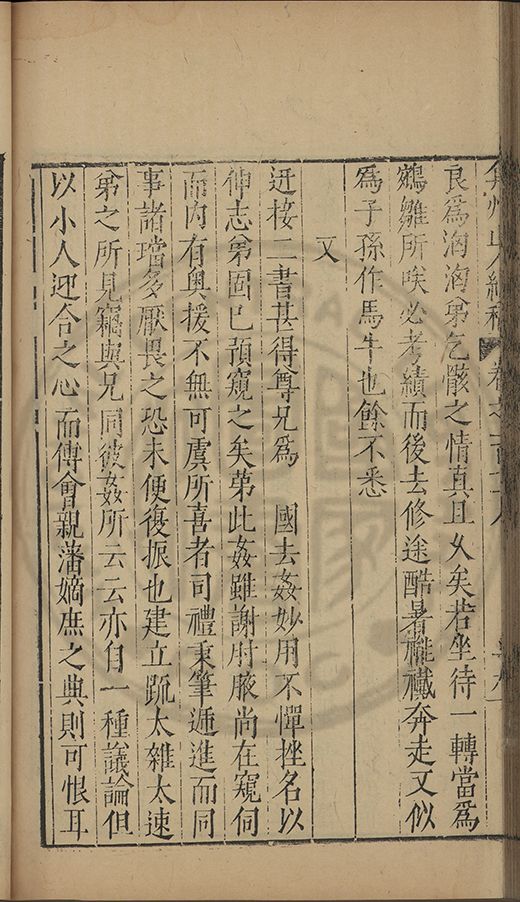 弇州山人續稿 卷之一百
良為洶洶弟乞骸之情真且久矣若坐待一轉當為
鵷雛所唉必考績而後去修途酷暑襶奔走又似
為子孫作馬牛也餘不悉
又
迓接二書甚得尊兄為 國去姦妙用不憚挫名以
伸志弟固已預窺之矣第此姦雖謝肘腋尚在窺伺
而內有奧援不無可虞所喜者司禮秉筆遞進而同
事諸璫多厭畏之恐未便復振也建立疏太雜太速
弟之所見竊與兄同彼姦所云云亦自一種議論但
以小人迎合之心而傳會親藩嫡庶之典則可恨耳